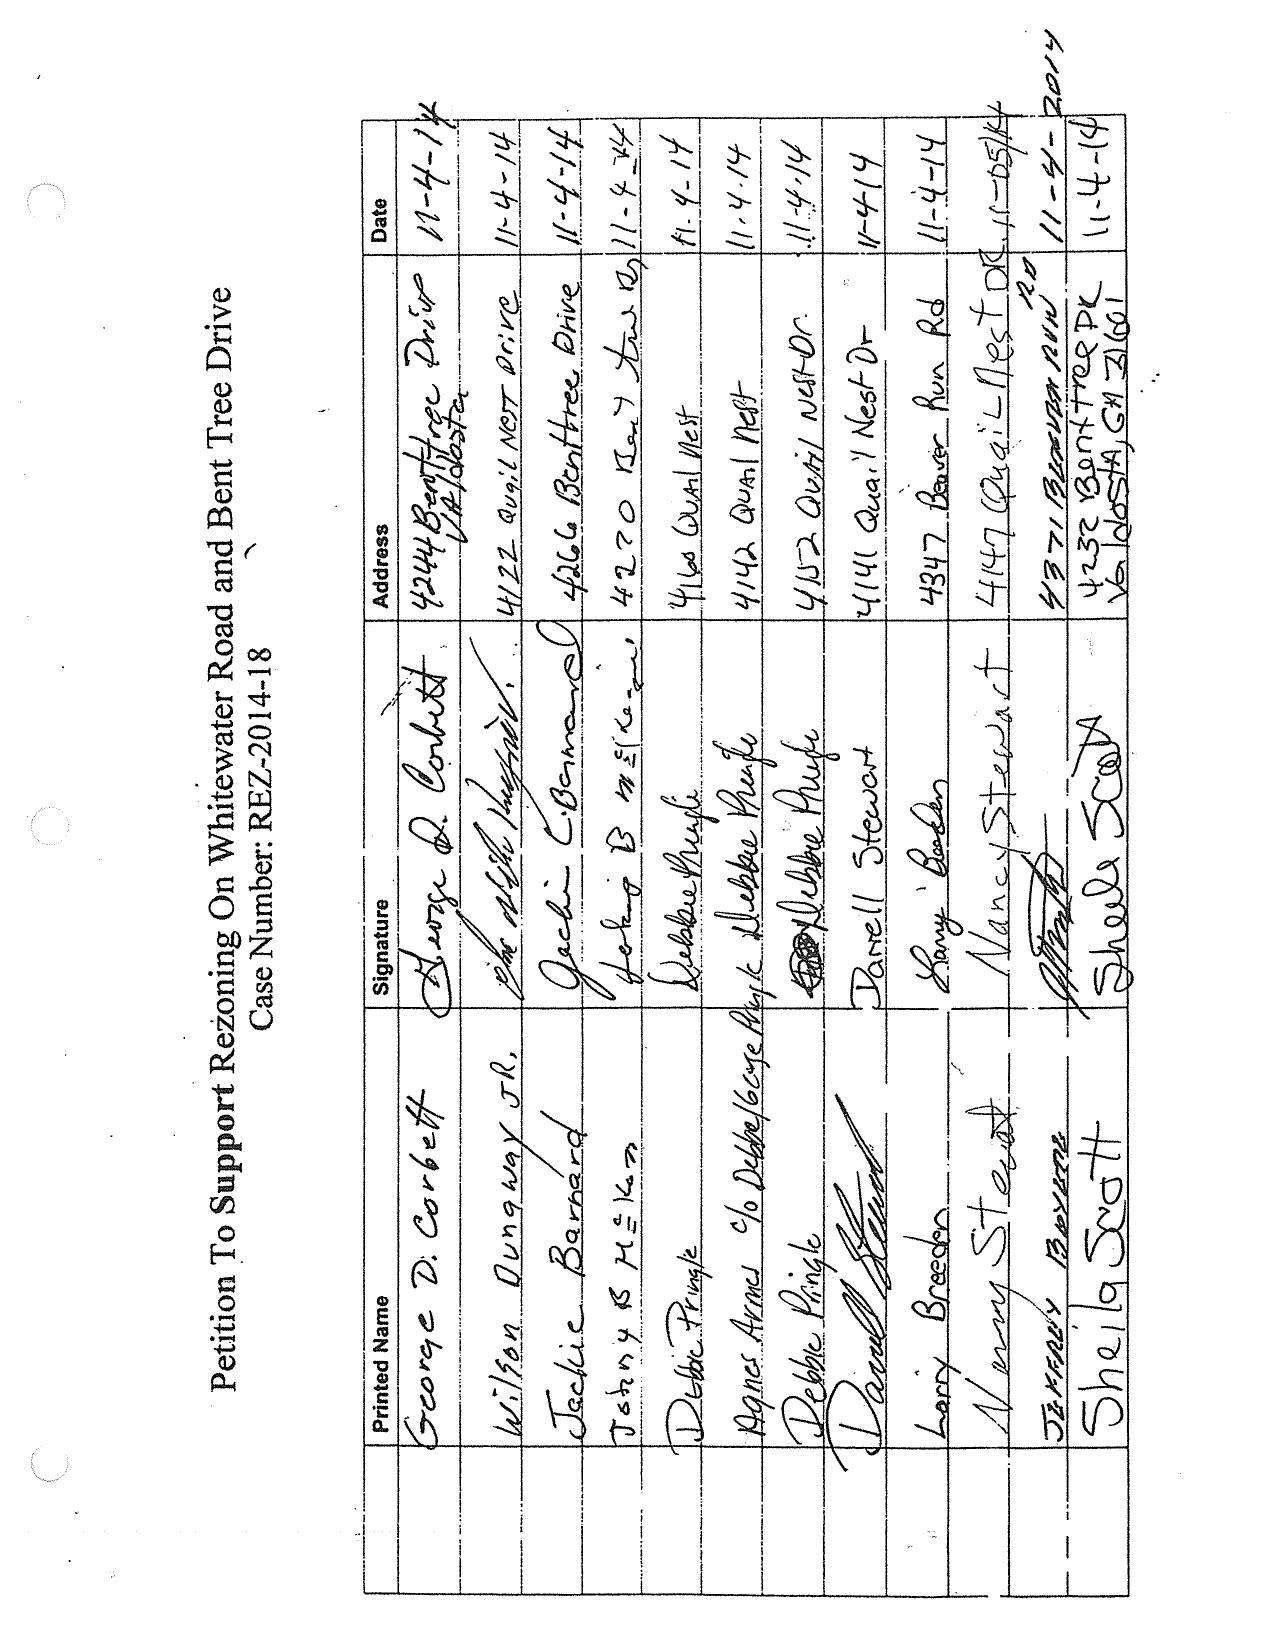 Petition To Support Rezoning On Whitewater Road and Bent Tree Drive
Case Number: REZ-2014-18
Printed Name Signature Address Date
George D. Corbett George D. Corbett 4244 Benttree Drive 11-4-14
Valdosta
Wilson Dungway JR. 4122 Quail Nest Drive 11-4-14
Jackie Barnard Jackie C. Barnard 4266 Benttree Drive 11-4-14
B 4270 Bent tree 11-4-14
Debbie Pringle Debbie Pringle 4160 Quail Nest 11-4-14
Agnes Armes c/o Debbie/George Pringle Debbie Pringle 4142 Quail Nest 11-4-14
Debbie Pringle Debbie Pringle 4152 Quail Nest Dr. 11-4-14
Darrell Stewart Darrell Stewart 4141 Quail Nest Dr 11-4-14
Larry Breeden Larry Breeden 4347 Beaver Run Rd 11-4-14
Nancy Stewart Nancy Stewart 4147 Quail Nest DR. 11-05/14
Jeffrey 4371 Beaver Run RD 11-4-2014
Sheila Scott Sheila Scott 4232 Benttree DR 11-4-14
Valdosta, GA 31601